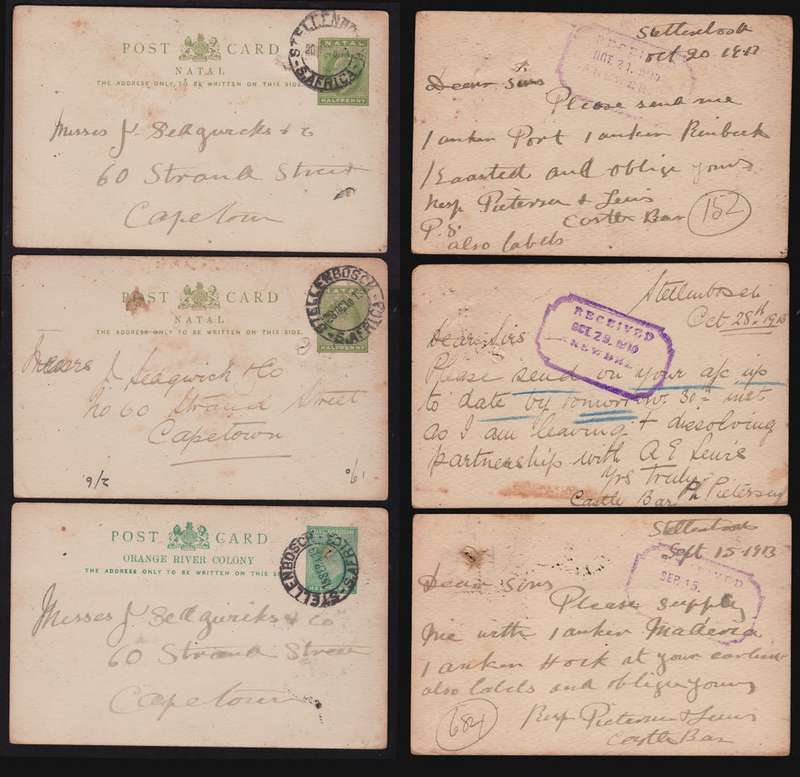 POST CARD
NATAL
THE ADDRESS ONLY TO BE WRITTEN ON THIS SIDE
NATAL
HALFPENNY
STELLENBOSCH
S.AFRICA
Messrs J. Sedgwicks & Co
60 Strand Street
Capetown
Stellenbosch
Oct 20 1913
RECEIVED
OCT 21
Dear Sirs
Please send me
1 anken Port 1 anken
and oblige yours
Resp Pietersen & Lewis
Castle Bar
P.S.
also labels
152
POST CARD
NATAL
THE ADDRESS ONLY TO BE WRITTEN ON THIS SIDE
HALFPENNY
STELLENBOSCH
S.AFRICA
Messrs
J Sedgwick & Co
No 60 Strand Street
Capetown
2/6
Stellenbosch
Oct 28th
RECEIVED
OCT 29
Dear Sirs
Please send on your a/c up
to date by tomorrow 30th inst
as I am leaving & dissolving
partnership with A E Lewis
Yrs Truly
Pietersen
Castle Bar
POST CARD
ORANGE RIVER COLONY
THE ADDRESS ONLY TO BE WRITTEN ON THIS
STELLENBOSCH
Messes J Sedgwicks & Co
60 Strand Street
Capetown
Stellenbosch
Sept 15 1913
SEP 15
Dear Sirs
Please supply
me with 1 anken Maderia
1 anken Hock at your earliest
also labels and oblige yours
Resp Pietersen & Lewis
Castle Bar
684